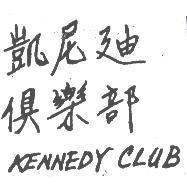 凱尼廸
俱樂部
KENNEDY CLUB